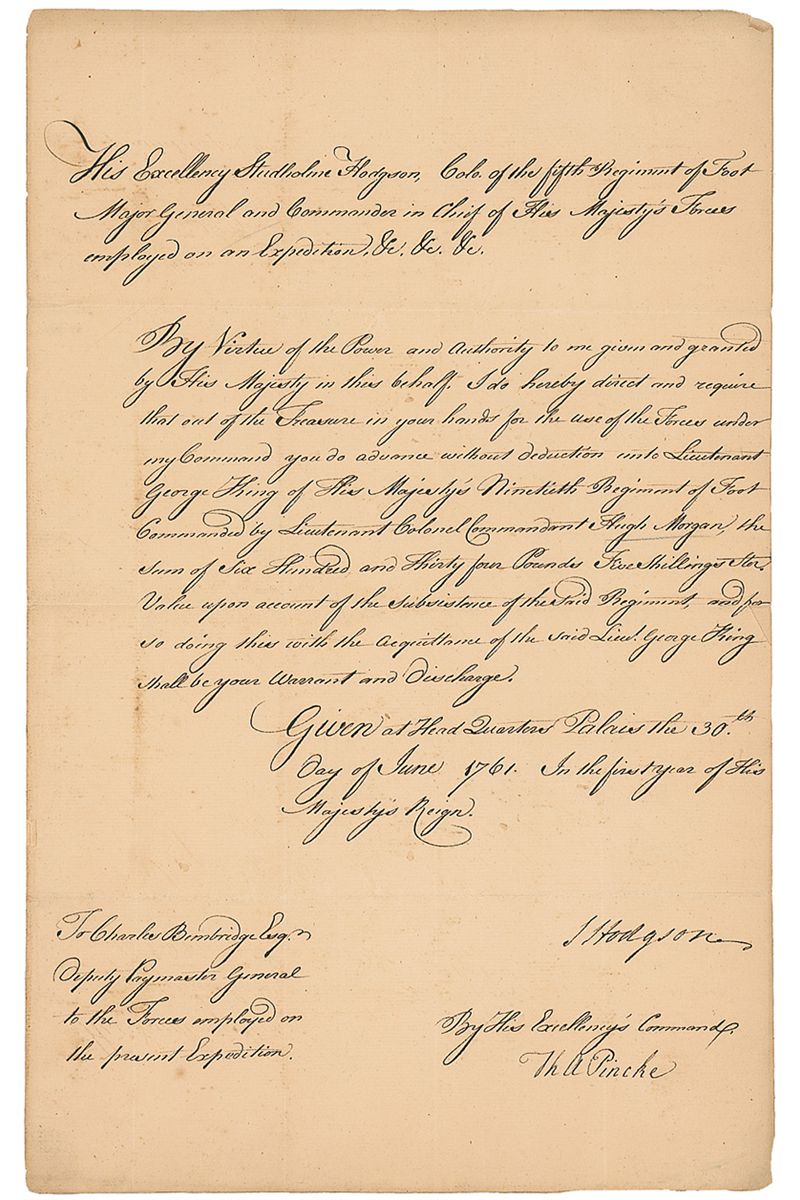 His Excellency Studholme Hodgson, Colo. of the fifth Regiment of Foot
Major General and Commander in Chief of His Majesty's Forces
employed on an Expedition, &c. &c. &c.
By Virtue of the Power and Authority to me given and granted
by His Majesty in this behalf, I do hereby direct and require
that out of the Treasure in your hands for the use of the Forces under
my Command you do advance without deduction unto Lieutenant
George King of His Majesty's Ninetieth Regiment of Foot
Commanded by Lieutenant Colonel Commandant Hugh Morgan, the
Sum of Six Hundred and Thirty four Pounds Five Shillings Ster.
Value upon account of the Subsistance of the said Regiment, and for
so doing this with the Acquittance of the said Lieut. George King
shall be your Warrant and Discharge.
Given at Head Quarters Palais the 30.th
Day of June 1761. In the first year of His
Majesty's Reign.
To Charles Bembridge Esq.r
Deputy Paymaster General
to the Forces employed on
the present Expedition.
S Hodgson
By His Excellency's Command.
Th A Pincke